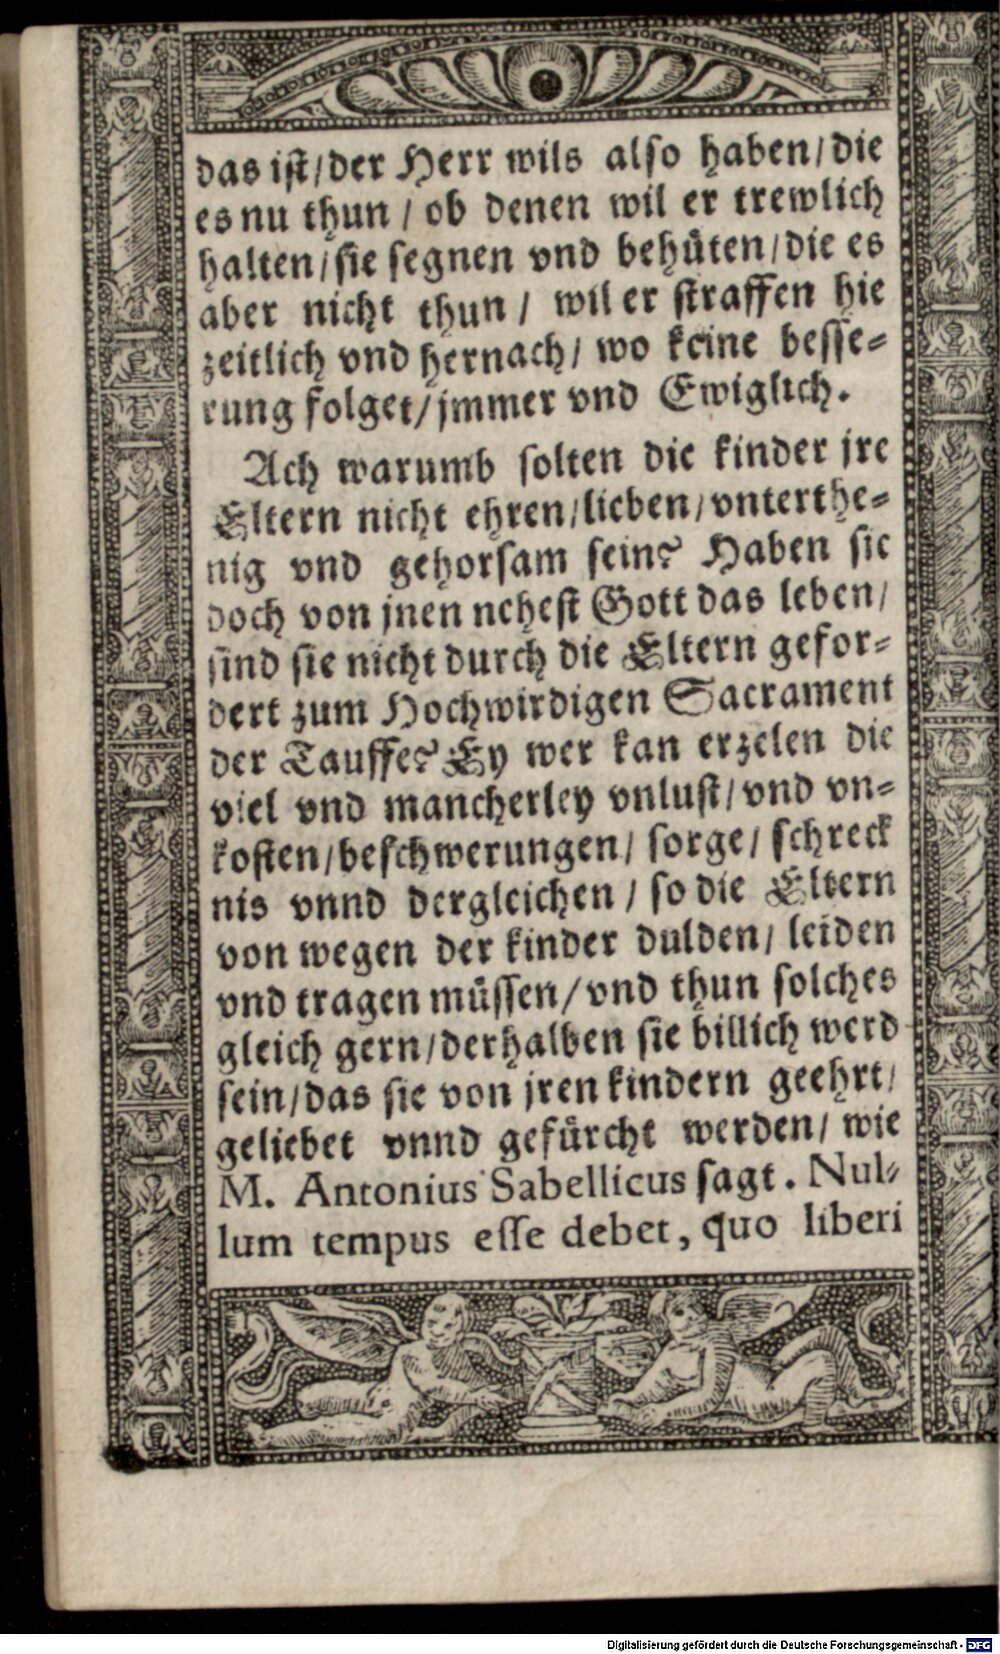 das iſt/der Herr wils alſo haben/die
es nu thun / ob denen wil er trewlich
halten/ſie ſegnen vnd behüten/die es
aber nicht thun / wil er ſtraffen hie
zeitlich vnd hernach/ wo keine beſſe⸗
rung folget/jmmer vnd Ewiglich.
Ach warumb ſolten die kinder jre
Eltern nicht ehren/lieben/vnterthe⸗
nig vnd gehorſam ſein? Haben ſie
doch von jnen neheſt Gott das leben/
ſind ſie nicht durch die Eltern gefor⸗
dert zum Hochwirdigen Sacrament
der Tauffe? Ey wer kan erzelen die
viel vnd mancherley vnluſt/vnd vn⸗
koſten/beſchwerungen/ ſorge/ ſchreck
nis vnnd dergleichen / ſo die Eltern
von wegen der kinder dulden/ leiden
vnd tragen müſſen/vnd thun ſolches
gleich gern/derhalben ſie billich werd
ſein/das ſie von jren kindern geehrt/
geliebet vnnd gefürcht werden/ wie
M. Antonius Sabellicus ſagt. Nul⸗
lum tempus eſſe debet, quo liberi
Digitalisierung gefördert durch die Deutsche Forschungsgemeinschaft - DFG